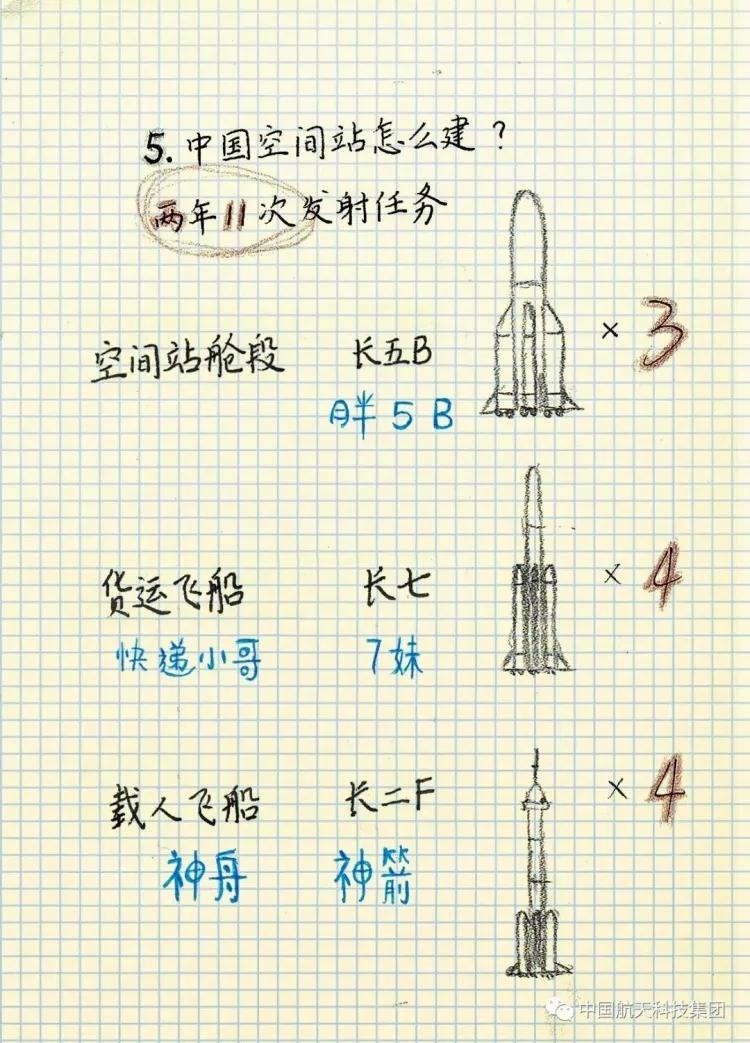 5.中国空间站怎么建？
两年11次发射任务
空间站舱段 长五B × 3
胖5B
货运飞船 长七 × 4
快递小哥 7妹
载人飞船 长二F × 4
神舟 神箭
中国航天科技集团